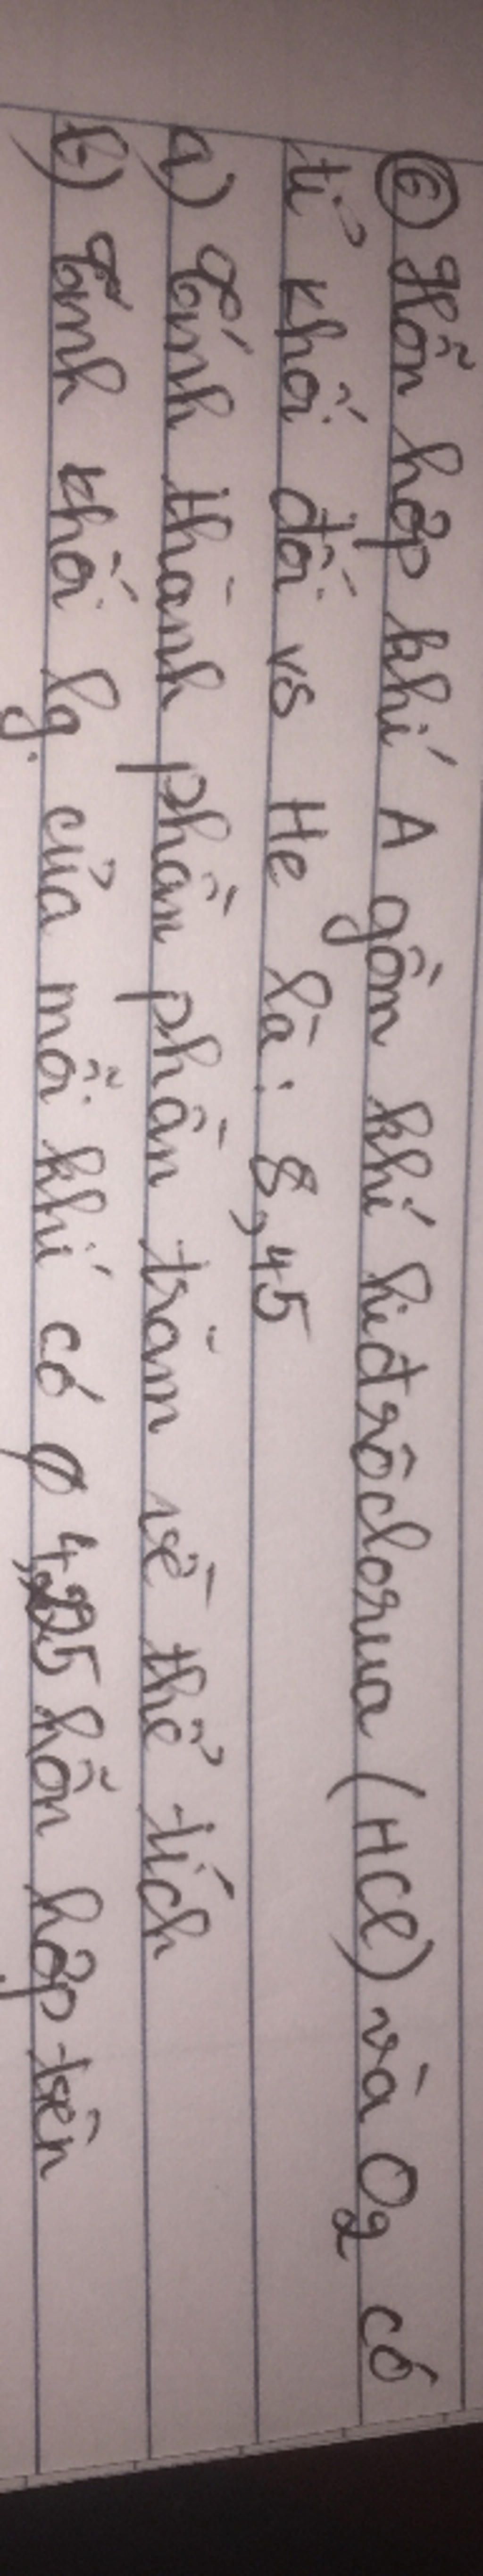 ⑥ Hỗn hợp khí A gồm khí hiđrôclorua (HCl) và O2 có
tỉ khối đối vs He là: 8,45
a) Tính thành phần phần trăm về thể tích
b) Tính khối lg của mỗi khí có hỗn hợp trên